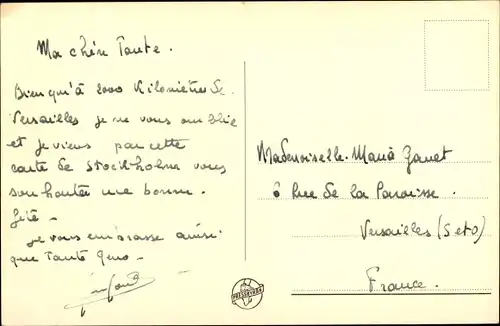 Ma chère Tante.
Bien qu'à 2000 Kilomètres de
Versailles je ne vous oublie
et je viens par cette
carte de Stockholm vous
souhaiter une bonne
fête -
je vous embrasse ainsi
que Tante
Mademoiselle Maria
6 Rue de la Paroisse.
Versailles (S et O)
France.